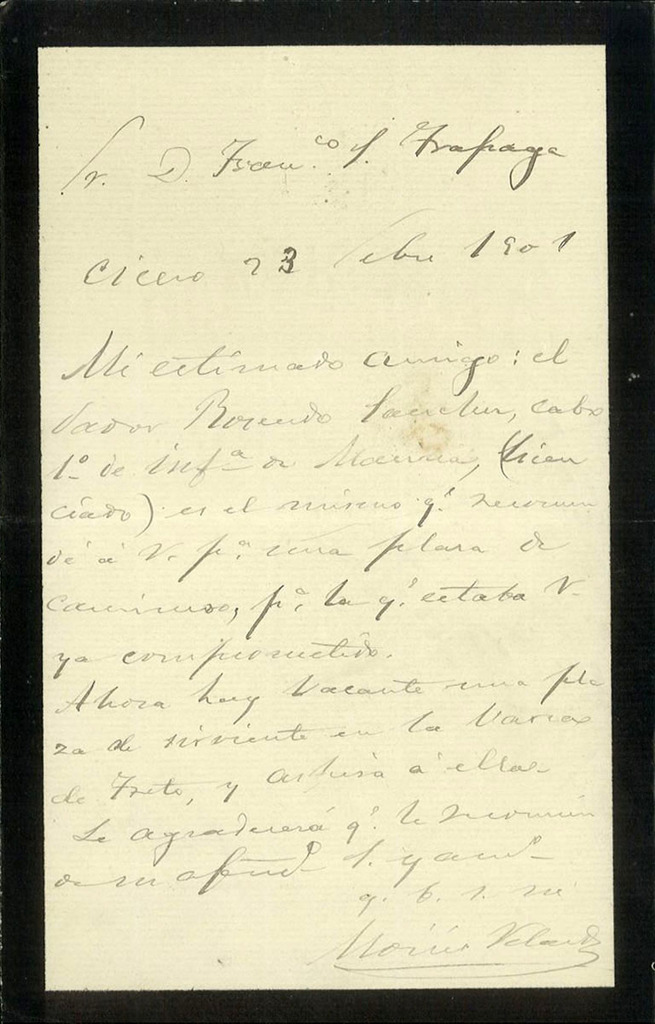 Sr. D. Fran.co S. Trapaga
Cicero 23 Febre 1901
Mi estimado amigo: el
dador Rosendo Sanchez, cabo
1º de infª de Marina, (licen
ciado) es el mismo q.e recomen
dé á V. pª una plaza de
caminero, pª la q.e estaba V.
ya comprometido.
Ahora hay vacante una pla
za de sirviente en la
de Treto, y aspira á ella.
Le agradecerá q.e le recomien
de su afmo S. y am.
q. b. s. m.
Velar